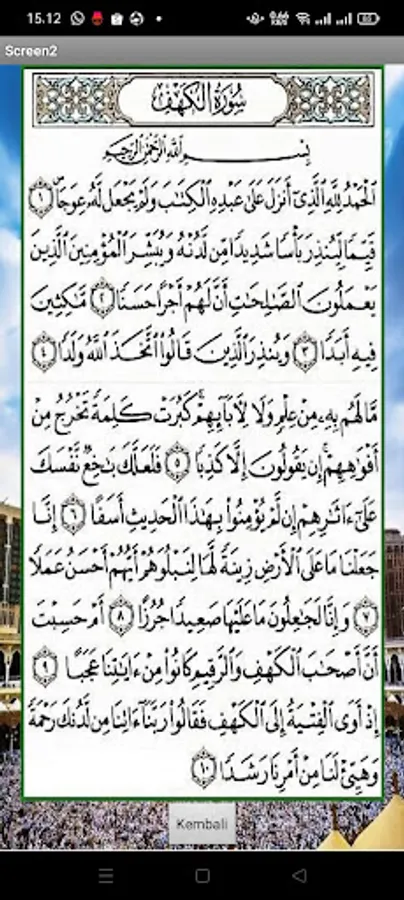 15.12
Screen2
سُورَةُ الْكَهْفِ
بِسْمِ اللَّهِ الرَّحْمَٰنِ الرَّحِيمِ
الْحَمْدُ لِلَّهِ الَّذِي أَنزَلَ عَلَىٰ عَبْدِهِ الْكِتَٰبَ وَلَمْ يَجْعَل لَّهُ عِوَجَا ۜ ١
قَيِّمًا لِّيُنذِرَ بَأْسًا شَدِيدًا مِّن لَّدُنْهُ وَيُبَشِّرَ الْمُؤْمِنِينَ الَّذِينَ
يَعْمَلُونَ الصَّٰلِحَٰتِ أَنَّ لَهُمْ أَجْرًا حَسَنًا ٢ مَّٰكِثِينَ
فِيهِ أَبَدًا ٣ وَيُنذِرَ الَّذِينَ قَالُوا اتَّخَذَ اللَّهُ وَلَدًا ٤
مَّا لَهُم بِهِ مِنْ عِلْمٍ وَلَا لِآبَائِهِمْ ۚ كَبُرَتْ كَلِمَةً تَخْرُجُ مِنْ
أَفْوَٰهِهِمْ ۚ إِن يَقُولُونَ إِلَّا كَذِبًا ٥ فَلَعَلَّكَ بَٰخِعٌ نَّفْسَكَ
عَلَىٰ ءَاثَٰرِهِمْ إِن لَّمْ يُؤْمِنُوا بِهَٰذَا الْحَدِيثِ أَسَفًا ٦ إِنَّا
جَعَلْنَا مَا عَلَى الْأَرْضِ زِينَةً لَّهَا لِنَبْلُوَهُمْ أَيُّهُمْ أَحْسَنُ عَمَلًا
٧ وَإِنَّا لَجَٰعِلُونَ مَا عَلَيْهَا صَعِيدًا جُرُزًا ٨ أَمْ حَسِبْتَ
أَنَّ أَصْحَٰبَ الْكَهْفِ وَالرَّقِيمِ كَانُوا مِنْ ءَايَٰتِنَا عَجَبًا ٩
إِذْ أَوَى الْفِتْيَةُ إِلَى الْكَهْفِ فَقَالُوا رَبَّنَا ءَاتِنَا مِن لَّدُنكَ رَحْمَةً
وَهَيِّئْ لَنَا مِنْ أَمْرِنَا رَشَدًا ١٠
Kembali